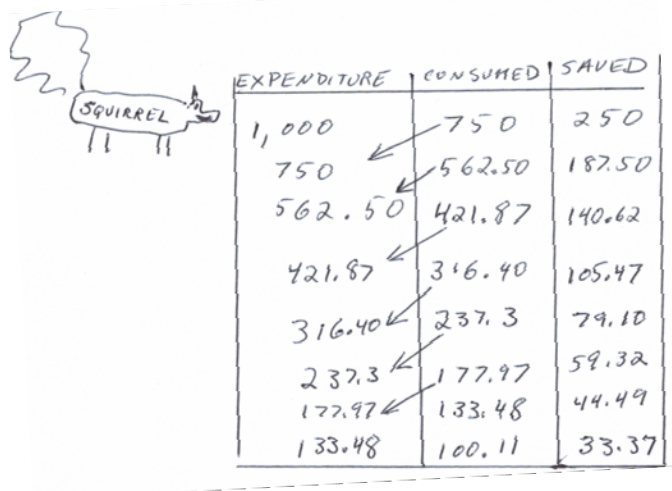 SQUIRREL
EXPENDITURE CONSUMED SAVED
1,000 750 250
750 562.50 187.50
562.50 421.87 140.62
421.87 316.40 105.47
316.40 237.3 79.10
237.3 177.97 59.32
177.97 133.48 44.49
133.48 100.11 33.37